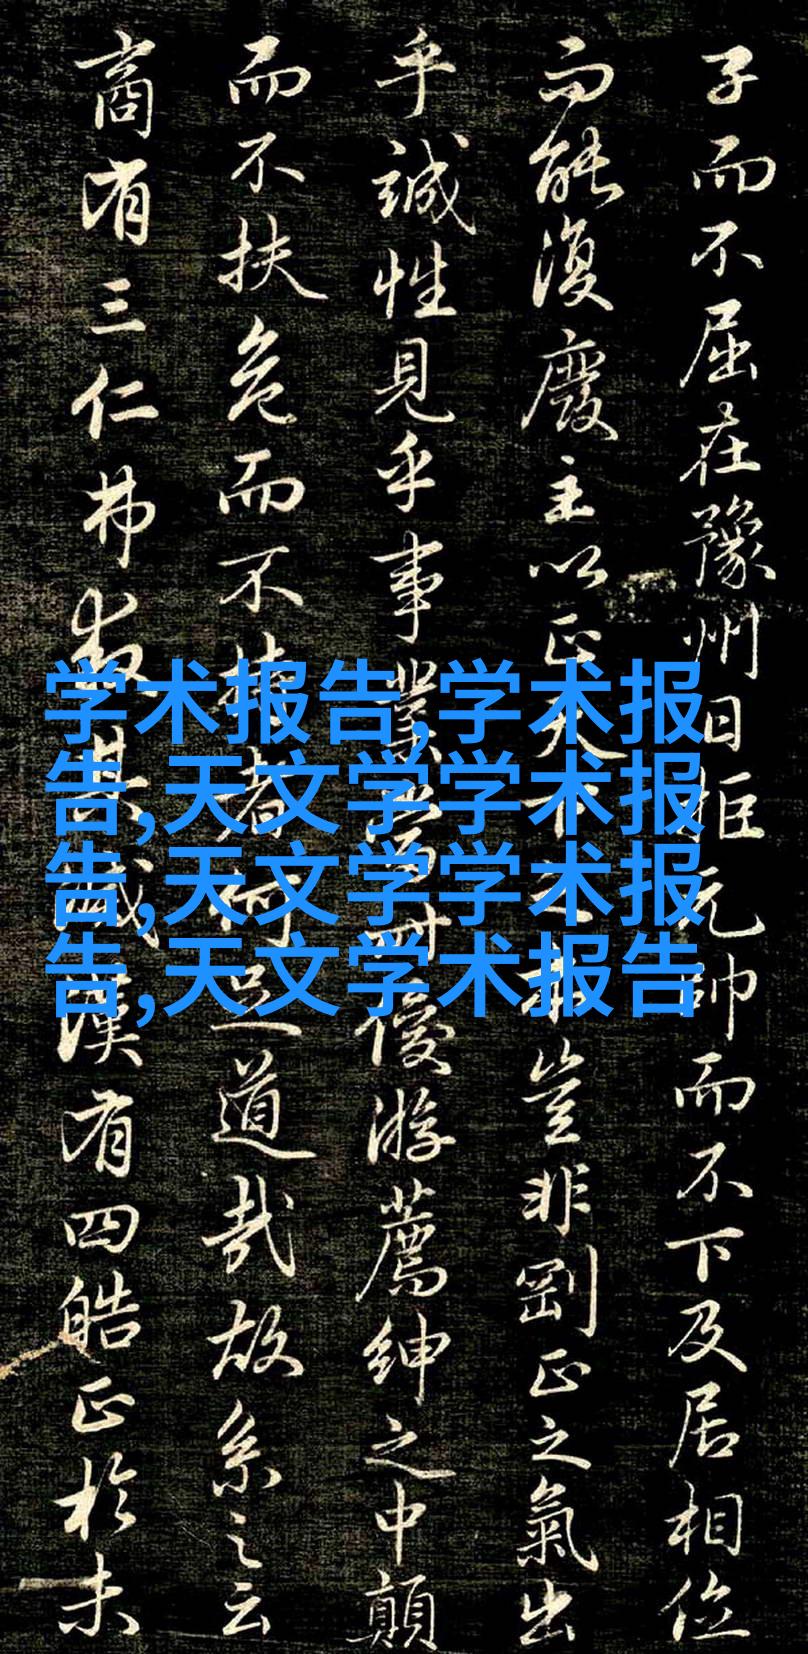 子而不屈在豫州日拒元帥而不下及居相位
而能復廢主以正天下之本豈非剛正之氣出
乎誠性見乎事業當時優游薦紳之中顛
而不扶危而不持者何足道哉故系之云
商有三仁弗救其滅漢有四皓正於未
学术报告,学术报
告,天文学学术报
告,天文学学术报
告,天文学术报告